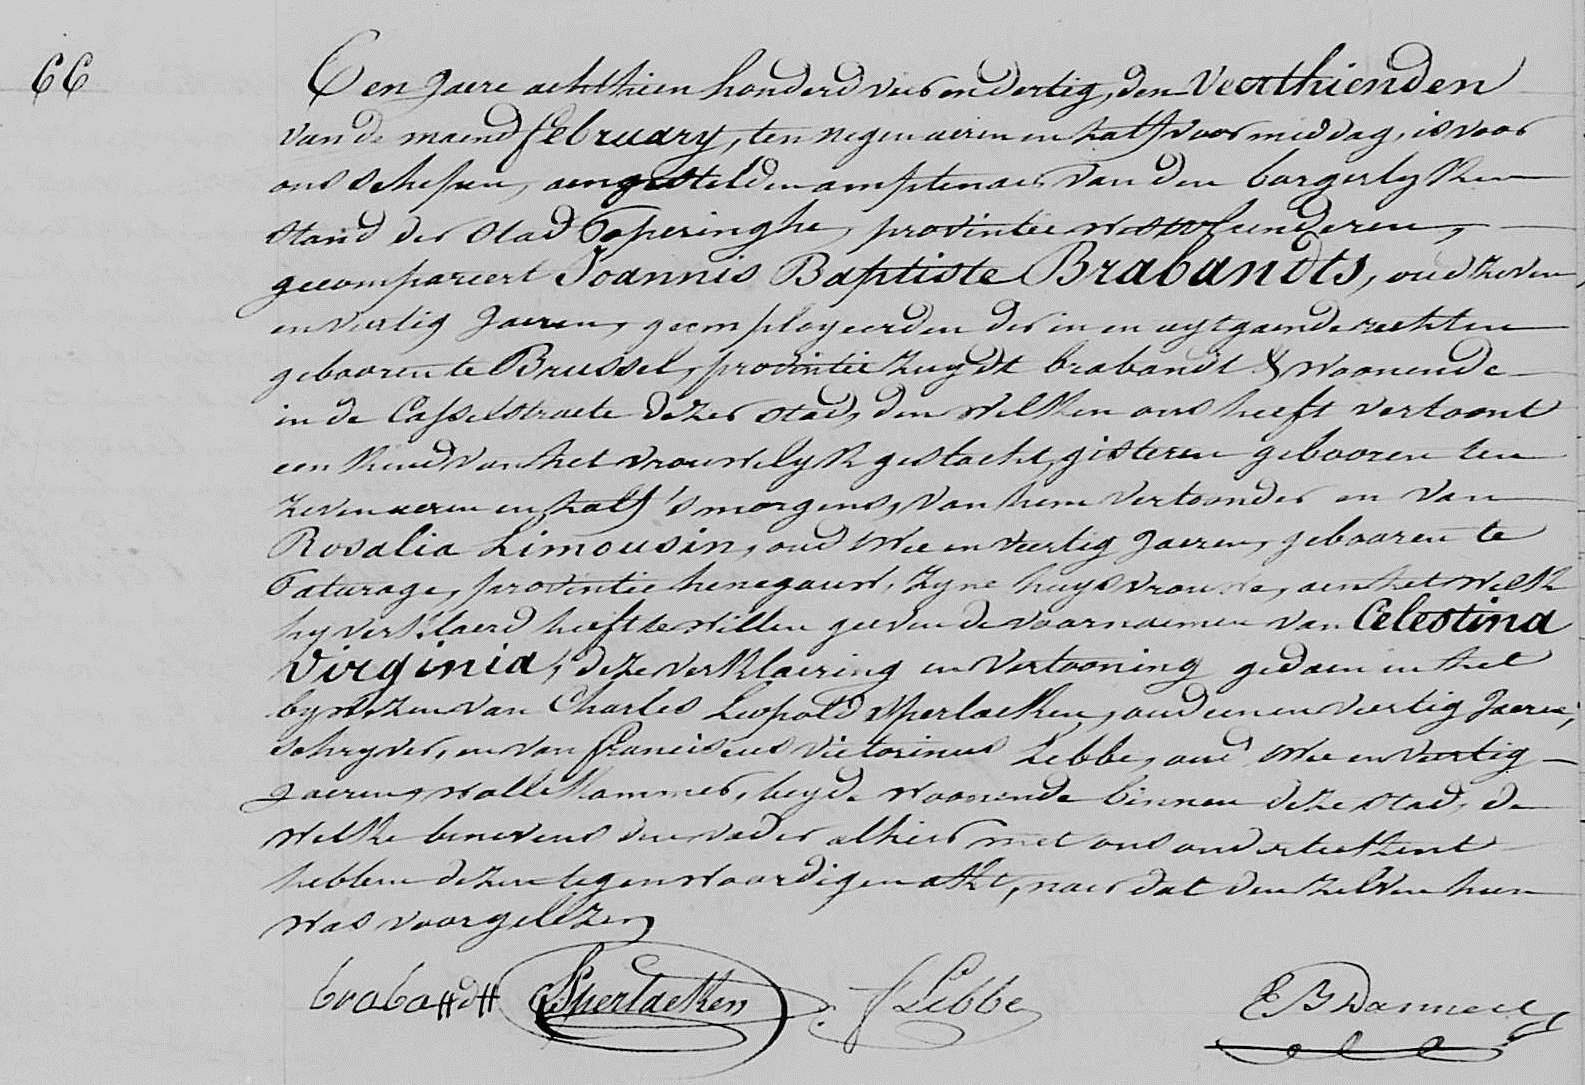 66
Een Jaere achthien honderd vier en dertig, den Veerthienden
van de maend february, ten negen ueren en half voor middag, is voor
ons schepen, aengestelden amptenaer van den borgerlyken
stand der stad Poperinghe, provintie westvlaenderen,
gecompareert Joannis Baptiste Brabandts, oud zeven
en veertig Jaeren, geemployeerden der in en uytgaende rechten
gebooren te Brussel, provintie zuydt brabandt & woonende
in de Casselstraete dezer stad, den welken ons heeft vertoont
een kind van het vrouwelyk geslacht, gisteren gebooren ten
zeven ueren en half 's morgens, van hem vertoonder en van
Rosalia Limousin, oud twee en veertig Jaeren, gebooren te
Paturage, provintie henegauw, zyne huysvrouwe, aen het welk
hy verklaerd heeft te willen geeven de voornaemen van Celestina
Virginia, deze verklaering en vertooning gedaen in het
bywezen van Charles Leopold Sperlaeken, oud een en veertig Jaeren,
schryver, en van franciscus victorinus Lebbe, oud twee en veertig
Jaeren, wollekammer, beyde woonende binnen deze stad, de
welke benevens den vader alhier met ons onderteekent
hebben dezen tegenwoordigen akt, naer dat den zelven hun
was voorgelezen
brabandt Sperlaeken f Lebbe